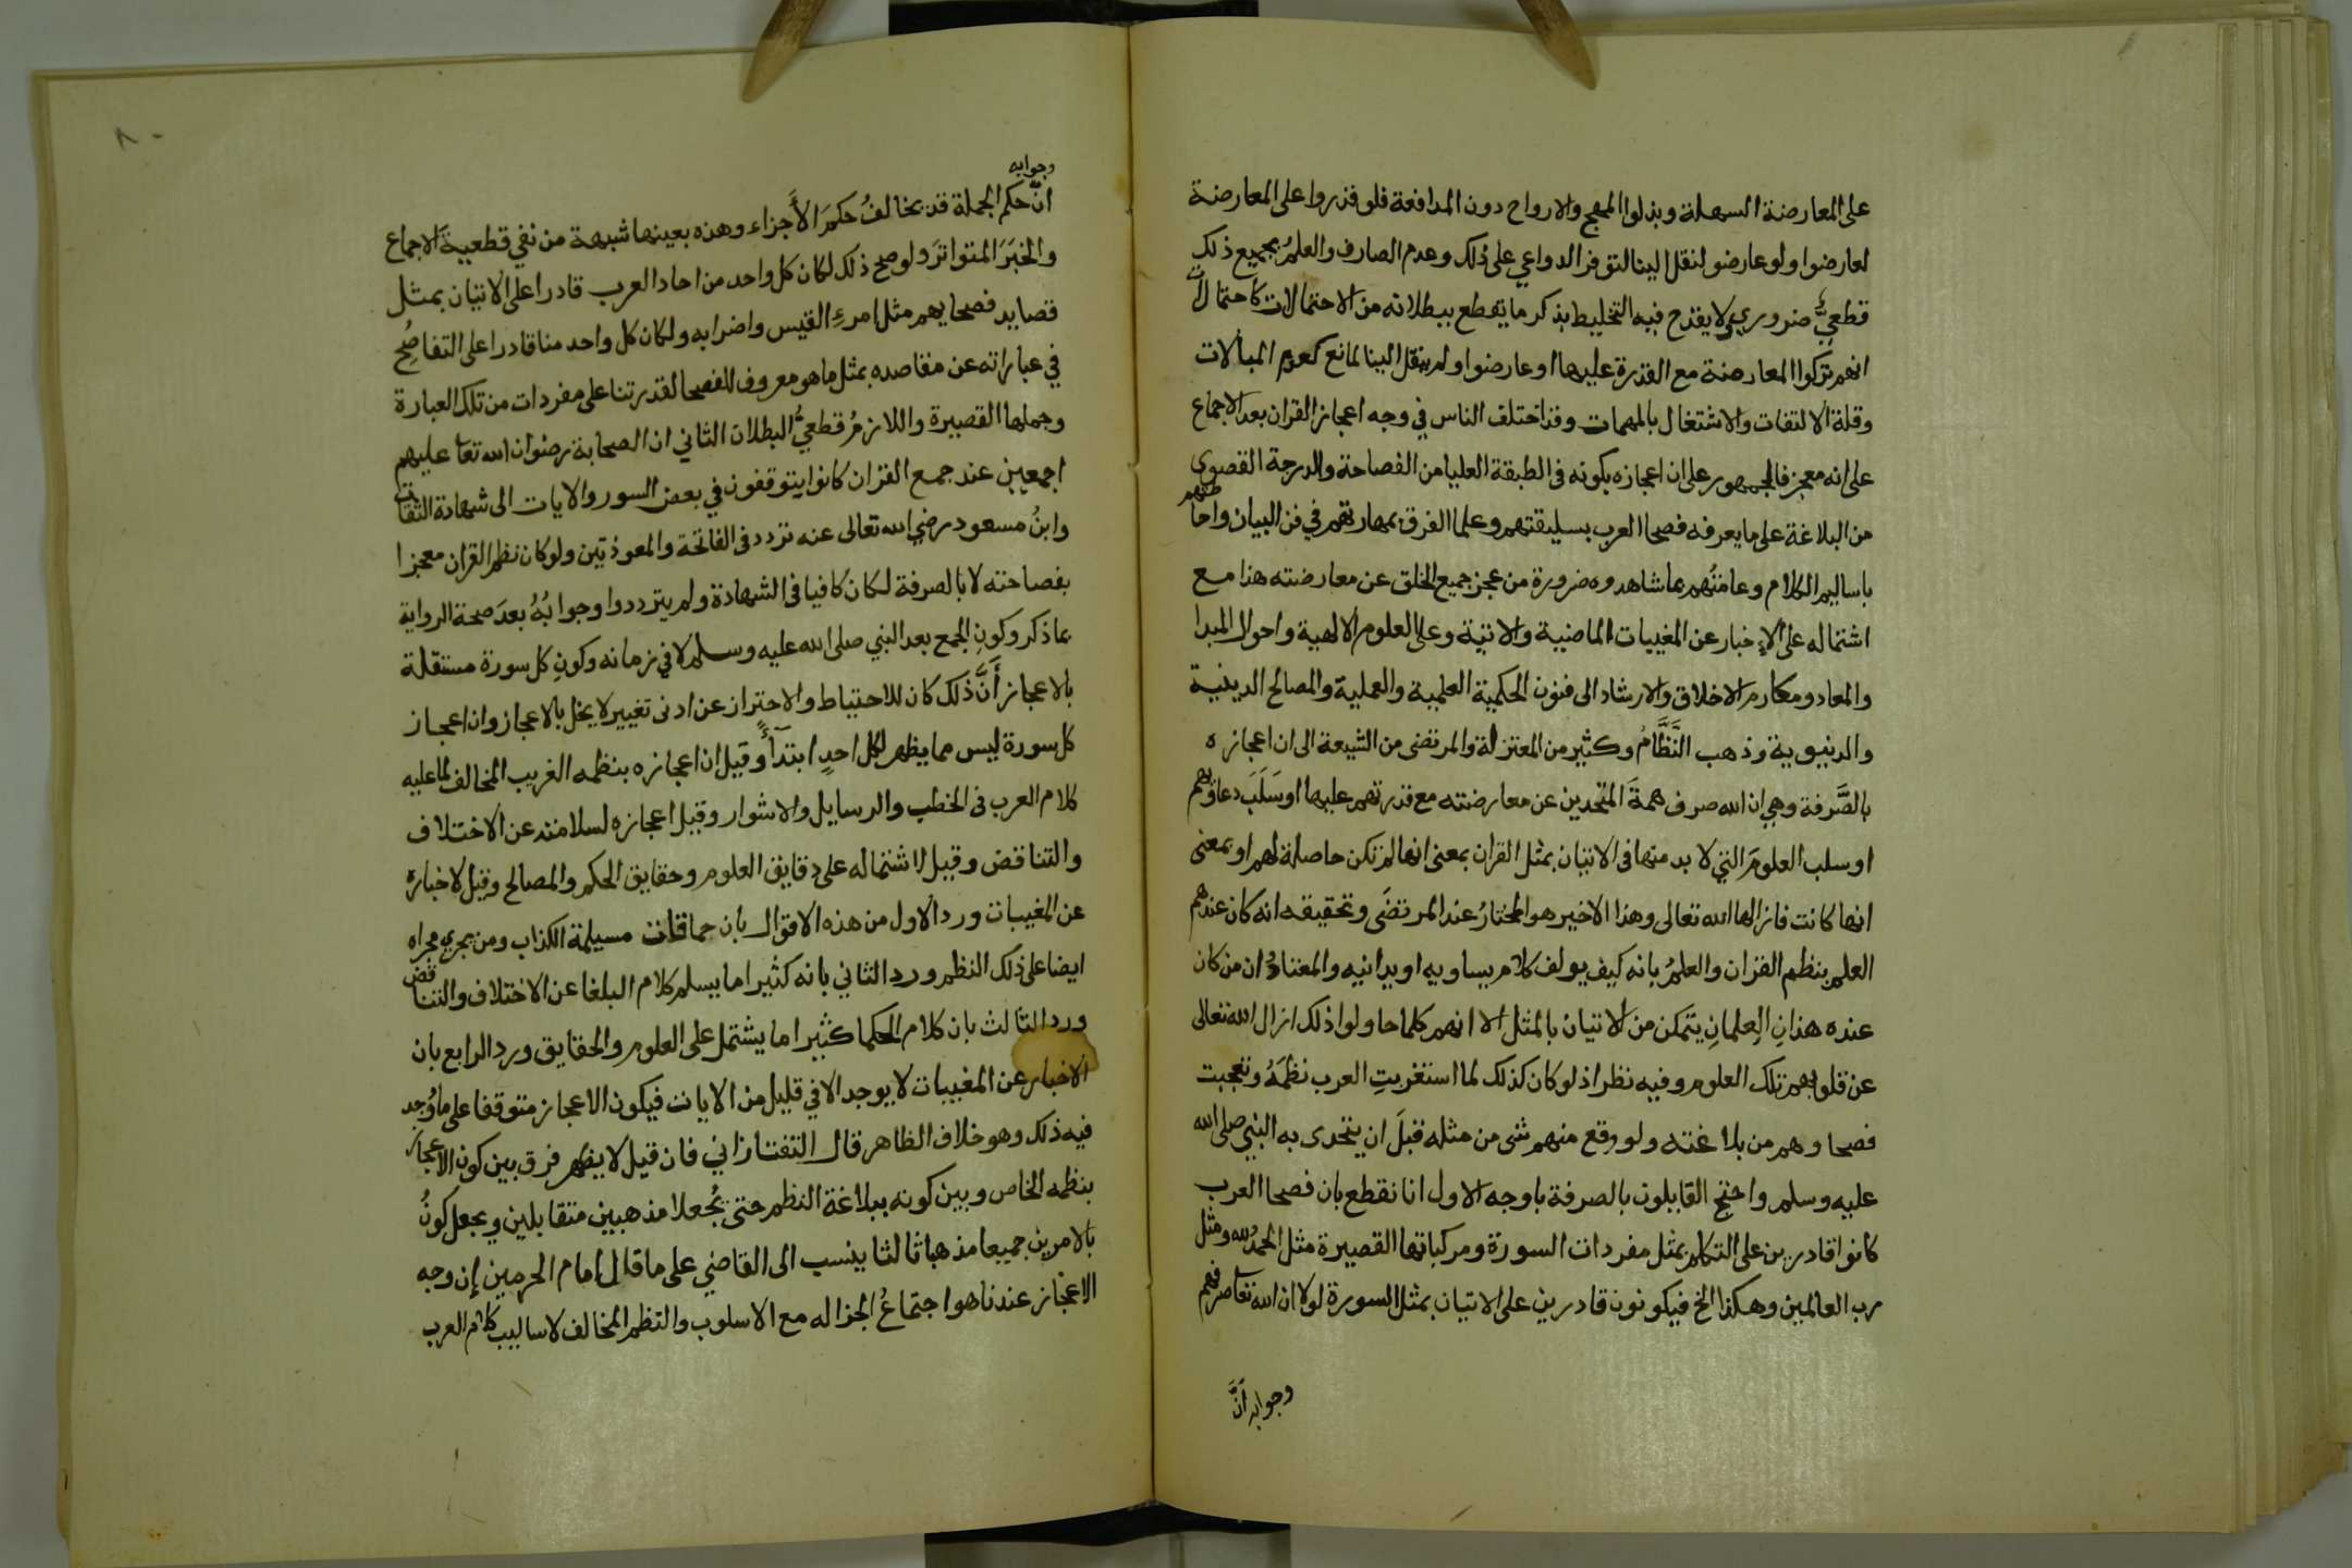 على المعارضة السهلة وبذلوا المهج والارواح دون المدافعة فلو قدروا على المعارضة
لعارضوا ولو عارضوا لنقل الينا لتوفر الدواعي على ذلك وعدم الصارف والعلمُ بجميع ذلك
قطعيٌّ ضروري لا يقدح فيه التخليط بذكر ما يقطع ببطلانه من الاحتمالات كاحتمال
انهم تركوا المعارضة مع القدرة عليها او عارضوا ولم ينقل الينا لمانع كعدم المبالات
وقلة الالتفات والاشتغال بالمهمات وقد اختلف الناس في وجه اعجاز القران بعد الاجماع
على انه معجز فالجمهور على ان اعجازه بكونه في الطبقة العليا من الفصاحة والدرجة القصوى
من البلاغة على ما يعرفه فصحا العرب بسليقتهم وعلما الفرق بمهارتهم في فن البيان واحاطتهم
باساليم الكلام وعامتُهم بما شاهدوه ضرورة من عجز جميع الخلق عن معارضته هذا مع
اشتماله على الاخبار عن المغيبات الماضية والاتية وعلى العلوم الالهية واحوال المبدا
والمعاد ومكارم الاخلاق والارشاد الى فنون الحكمية العلمية والعملية والمصالح الدينية
والدنيوية وذهب النَّظَّامُ وكثير من المعتزلة والمرتضى من الشيعة الى ان اعجازه
بالصَّرفة وهي ان الله صرف همةَ المتحدين عن معارضته مع قدرتهم عليها او سَلَبَ دعاويهم
او سلب العلومَ التي لا بد منها في الاتيان بمثل القران بمعنى انها لم تكن حاصلة لهم او بمعنى
انها كانت فازالها الله تعالى وهذا الاخير هو المختارُ عند المرتضَى وتحقيقه انه كان عندهم
العلم بنظم القران والعلمُ بانه كيف يولف كلام يساويه او يدانيه والمعتادُ ان من كان
عنده هذانِ العِلمانِ يتمكن من الاتيان بالمثل الا انهم كلما حاولوا ذلك ازال الله تعالى
عن قلوبهم تلك العلوم وفيه نظر اذ لو كان كذلك لما استغربتِ العرب نظمَهُ وتعجبت
فصحاوهم من بلاغته ولو وقع منهم شى من مثله قبلَ ان يتحدى به النبي صلى الله
عليه وسلم واحتج القايلون بالصرفة باوجه الاول انا نقطع بان فصحا العرب
كانوا قادرين على التكلم بمثل مفردات السورة ومركباتها القصيرة مثل الحمدُ لله ومثل
رب العالمين وهكذا الخ فيكونون قادرين على الاتيان بمثل السورة لولا ان الله تعا صرفهم
وجوابه انَّ
٨٠
وجوابه
انَّ حكم الجملة قد يخالفُ حكمَ الأَجزاء وهذه بعينها شبهة من نفي قطعيةَ الاجماع
والخبَرَ المتواترَ ولو صح ذلك لكان كل واحد من احاد العرب قادرا على الاتيان بمثل
قصايد فصحايهم مثل امرءِ القيس واضرابه ولكان كل واحد منا قادرا على التفاصُح
في عباراته عن مقاصده بمثل ما هو معروف للفصحا لقدرتنا على مفردات من تلك العبارة
وجملها القصيرة واللازمُ قطعيُّ البطلان الثاني ان الصحابة رضوان الله تعا عليهم
اجمعين عند جمع القران كانوا يتوقفون في بعض السور والايات الى شهادة الثقات
وابنُ مسعود رضي الله تعالى عنه تردد فى الفاتحة والمعوذتين ولو كان نظم القران معجزا
بفصاحته لا بالصرفة لكان كافيا فى الشهادة ولم يترددوا وجوابُهُ بعدَ صحة الرواية
بما ذكر وكونِ الجمع بعد النبي صلى الله عليه وسلم لا في زمانه وكونِ كل سورة مستقلة
بالاعجاز أَنَّ ذلك كان للاحتياط والاحترازِ عن ادنى تغيير لا يخل بالاعجاز وان اعجاز
كل سورة ليس مما يظهر لكل احدٍ ابتدآءً وقيل ان اعجازه بنظمه الغريب المخالف لما عليه
كلام العرب فى الخطب والرسايل والاشوار وقيل اعجازه لسلامته عن الاختلاف
والتناقض وقيل لاشتماله على دقايق العلوم وحقايق الحكم والمصالح وقيل لاخباره
عن المغيبات ورد الاول من هذه الاقوال بان حماقات مسيلمة الكذاب ومن يجري مجراه
ايضا على ذلك النظم ورد الثاني بانه كثيرا ما يسلم كلام البلغا عن الاختلاف والتناقض
ورد الثالث بان كلام الحكما كثيرا ما يشتمل على العلوم والحقايق ورد الرابع بان
الاخبار عن المغيبات لا يوجد الا في قليل من الايات فيكون الاعجاز متوقفا على ما وُجد
فيه ذلك وهو خلاف الظاهر قال التفتازاني فان قيل لا يظهر فرق بين كون الاعجاز
بنظمه الخاص وبين كونه ببلاغة النظم حتى يُجعلا مذهبين متقابلين ويجعل كونُ
بالامرين جميعا مذهبا ثالثا ينسب الى القاضي على ما قال امام الحرمين إن وجه
الاعجاز عندنا هو اجتماعُ الجزاله مع الاسلوب والنظم المخالف لاساليب كلام العرب